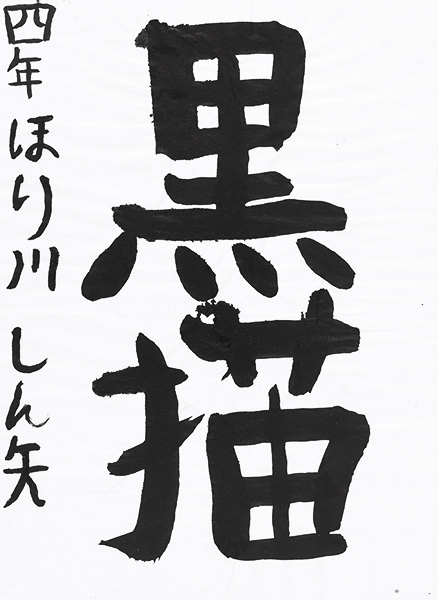 黒描
四年 ほり川 しん矢